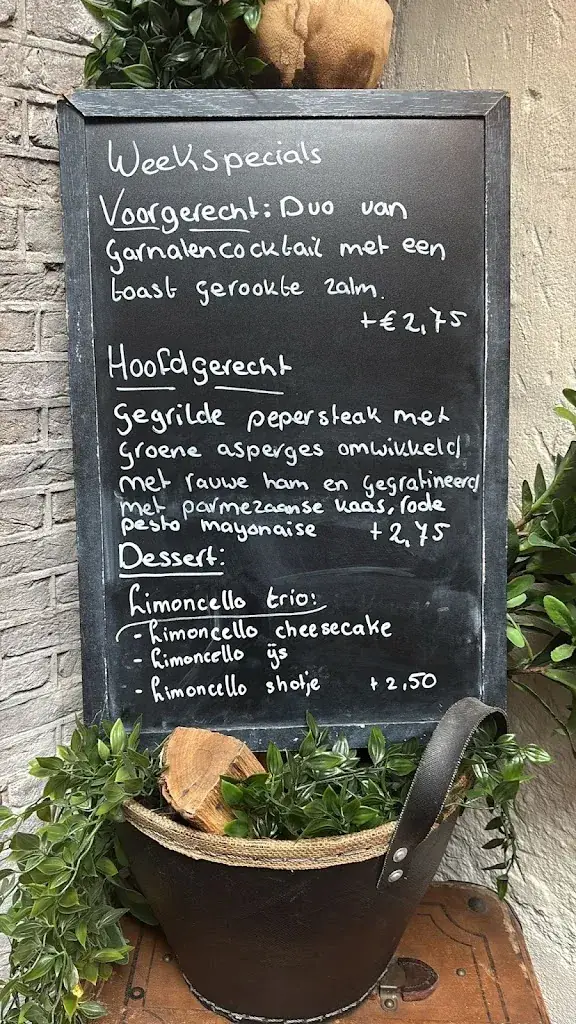 Weekspecials
Voorgerecht: Duo van
garnalencocktail met een
toast gerookte zalm.
+€2,75
Hoofdgerecht
gegrilde pepersteak met
groene asperges omwikkeld
met rauwe ham en gegratineerd
met parmezaanse kaas, rode
pesto mayonaise +2,75
Dessert:
Limoncello trio:
- Limoncello cheesecake
- Limoncello ijs
- Limoncello shotje +2,50